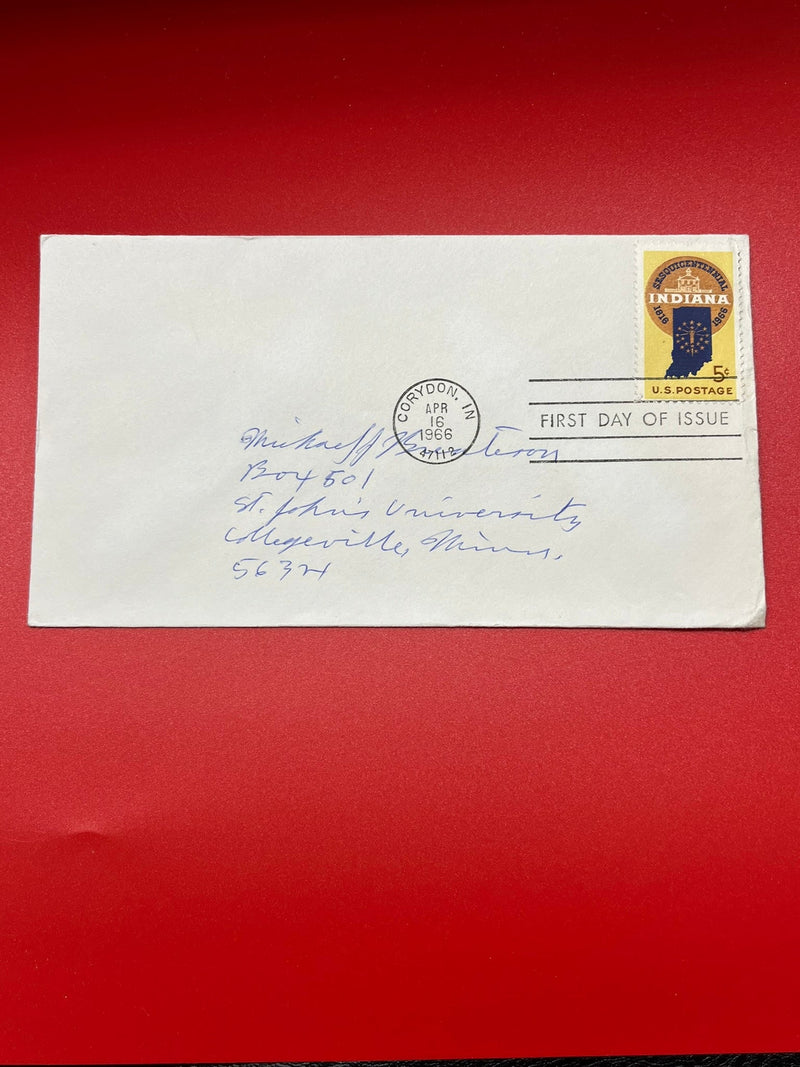 SESQUICENTENNIAL
INDIANA
1816 1966
5¢
U.S. POSTAGE
CORYDON, IN
APR
16
1966
47112
FIRST DAY OF ISSUE
Box 501
St. John's University
Collegeville, Minn.
56321